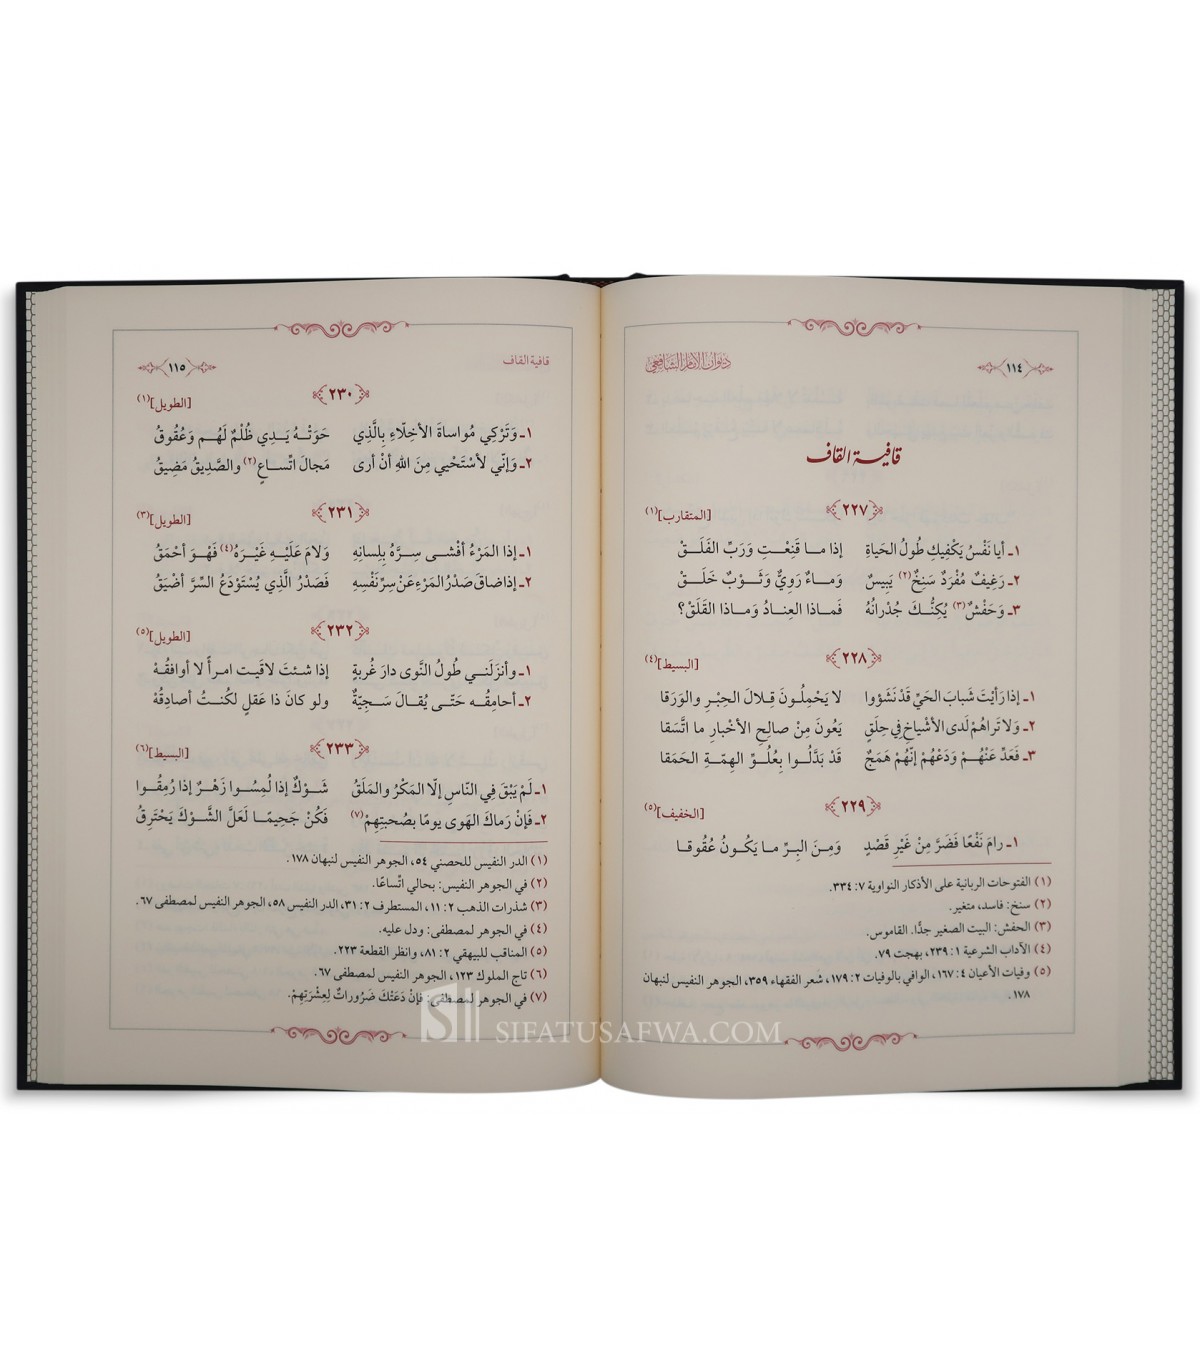 ١١٤
ديوان الإمام الشافعي
قافية القاف
٢٢٧
[المتقارب](١)
١ـ أيا نَفْسُ يَكْفِيكِ طُولُ الحَياةِ إذا ما قَنِعْتِ وَرَبِّ الفَلَقْ
٢ـ رَغِيفٌ مُفْرَدٌ سَنِخٌ(٢) يَبِيسٌ وَماءٌ رَوِيٌّ وَثَوْبٌ خَلَقْ
٣ـ وَحَفْشٌ(٣) يُكِنُّكَ جُدْرانُهُ فَماذا العِنادُ وَماذا القَلَقْ؟
٢٢٨
[البسيط](٤)
١ـ إذا رَأيْتَ شَبابَ الحَيِّ قَدْ نَشَؤوا لا يَحْمِلُونَ قِلالَ الحِبْرِ والوَرَقا
٢ـ وَلا تَراهُمْ لَدى الأشْياخِ فِي حِلَقٍ يَعُونَ مِنْ صالِحِ الأخْبارِ ما اتَّسَقا
٣ـ فَعَدِّ عَنْهُمْ وَدَعْهُمْ إنَّهُمْ هَمَجٌ قَدْ بَدَّلُوا بِعُلُوِّ الهِمَّةِ الحَمَقا
٢٢٩
[الخفيف](٥)
١ـ رامَ نَفْعًا فَضَرَّ مِنْ غَيْرِ قَصْدٍ وَمِنَ البِرِّ ما يَكُونُ عُقُوقا
(١) الفتوحات الربانية على الأذكار النواوية ٧: ٣٣٤.
(٢) سنخ: فاسد، متغير.
(٣) الحفش: البيت الصغير جدًّا. القاموس.
(٤) الآداب الشرعية ١: ٢٣٩، بهجت ٧٩.
(٥) وفيات الأعيان ٤: ١٦٧، الوافي بالوفيات ٢: ١٧٩، شعر الفقهاء ٣٥٩، الجوهر النفيس لنبهان
١٧٨.
قافية القاف
١١٥
٢٣٠
[الطويل](١)
١ـ وَتَرْكِي مُواساةَ الأخِلّاءِ بِالَّذِي حَوَتْهُ يَدِي ظُلْمٌ لَهُم وَعُقُوقُ
٢ـ وَإنّي لأسْتَحْيي مِنَ اللهِ أنْ أرى مَجالَ اتِّساعٍ(٢) والصَّدِيقُ مَضِيقُ
٢٣١
[الطويل](٣)
١ـ إذا المَرْءُ أفْشى سِرَّهُ بِلِسانِهِ وَلامَ عَلَيْهِ غَيْرَهُ(٤) فَهْوَ أحْمَقُ
٢ـ إذا ضاقَ صَدْرُ المَرْءِ عَنْ سِرِّ نَفْسِهِ فَصَدْرُ الَّذِي يُسْتَوْدَعُ السِّرَّ أضْيَقُ
٢٣٢
[الطويل](٥)
١ـ وأنزَلَني طُولُ النَّوى دارَ غُربةٍ إذا شئتَ لاقَيت امرأً لا أوافقُهْ
٢ـ أحامِقُه حَتّى يُقالَ سَجِيّةٌ ولو كانَ ذا عَقلٍ لكُنتُ أصادِقُهْ
٢٣٣
[البسيط](٦)
١ـ لَمْ يَبْقَ فِي النّاسِ إلّا المَكْرُ والمَلَقُ شَوْكٌ إذا لُمِسُوا زَهْرٌ إذا رُمِقُوا
٢ـ فَإنْ رَماكَ الهَوى يومًا بصُحبتِهِمْ(٧) فَكُنْ جَحِيمًا لَعَلَّ الشَّوْكَ يَحْتَرِقُ
(١) الدر النفيس للحصني ٥٤، الجوهر النفيس لنبهان ١٧٨.
(٢) في الجوهر النفيس: بحالي اتّساعًا.
(٣) شذرات الذهب ٢: ١١، المستطرف ٢: ٣١، الدر النفيس ٥٨، الجوهر النفيس لمصطفى ٦٧.
(٤) في الجوهر لمصطفى: ودل عليه.
(٥) المناقب للبيهقي ٢: ٨١، وانظر القطعة ٢٢٣.
(٦) تاج الملوك ١٢٣، الجوهر النفيس لمصطفى ٦٧.
(٧) في الجوهر لمصطفى: فإنْ دَعَتْكَ ضَرُوراتٌ لِعِشْرَتِهِمْ.
SIFATUSAFWA.COM